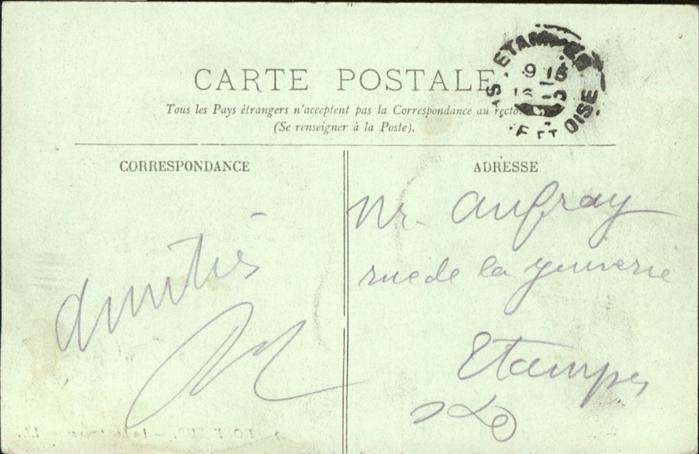 CARTE POSTALE
Tous les Pays étrangers n'acceptent pas la Correspondance au recto
(Se renseigner à la Poste).
CORRESPONDANCE
ADRESSE
ETAMPES
S. ET OISE
amitiés
Mr. Aufray
rue de la Juiverie
Etampes